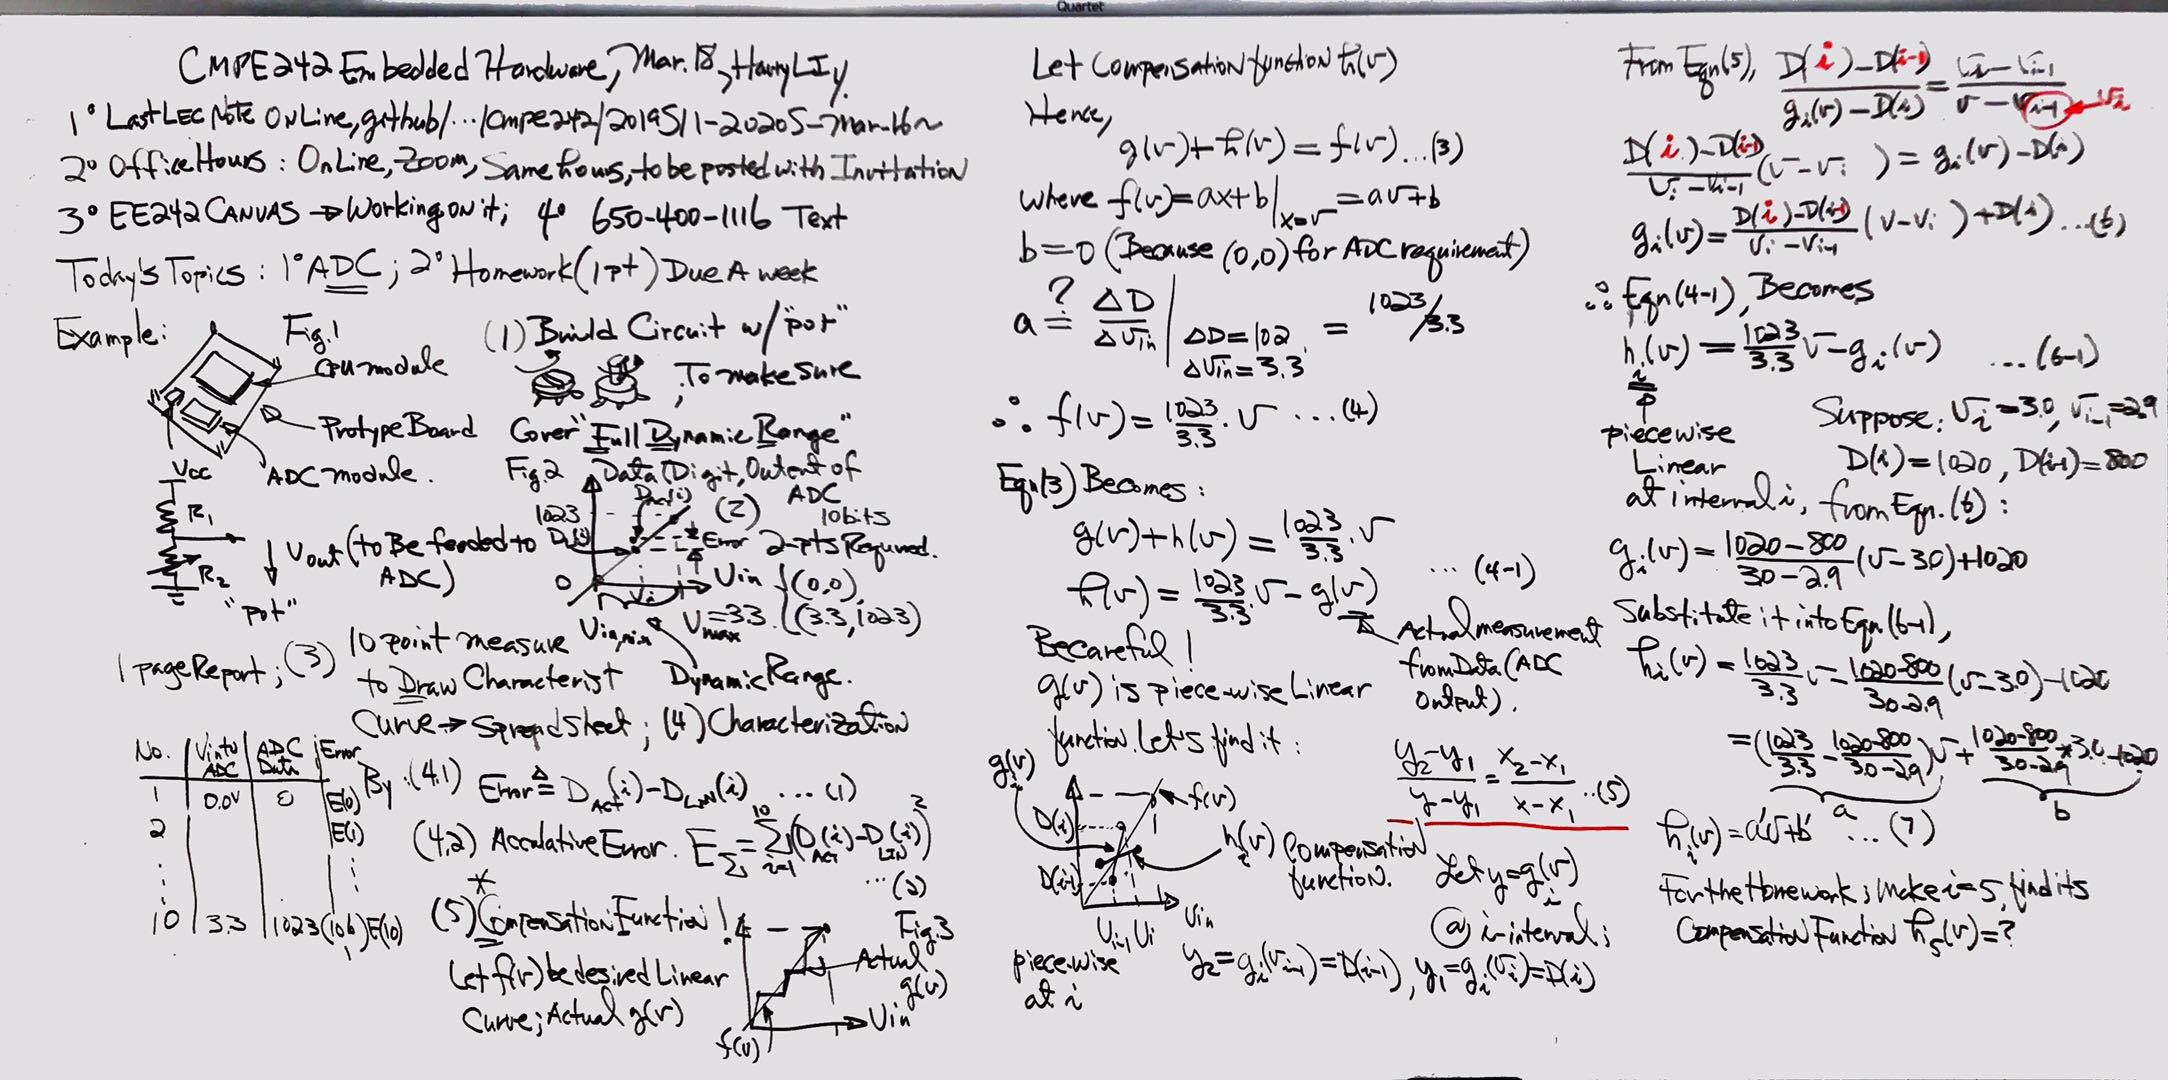 Quartet
CMPE242 Embedded Hardware, Mar. 18, Harry LI
1° Last LEC Note OnLine, github/.../cmpe242/2019S/1-2020S-Mar-16~
2° Office Hours : OnLine, Zoom, Same hours, to be posted with Invitation
3° EE242 CANVAS → Working on it; 4° 650-400-1116 Text
Today's Topics : 1° ADC ; 2° Homework (1pt) Due A week
Example:
Fig.1
CPU module
Protype Board
ADC module.
Vcc
R1
R2
Vout (to Be feeded to
ADC)
"pot"
(1) Build Circuit w/ "pot"
, To make sure
Cover "Full Dynamic Range"
Fig.2 Data (Digit, Output of
ADC
10bits
DACT(i)
1023
(2)
Error
2-pts Required.
0
Vi
Vin
{(0,0),
(3.3, 1023)
Vmax = 3.3
Vin,min
Dynamic Range.
1 page Report ; (3) 10 point measure
to Draw Characterist
Curve → Spreadsheet ; (4) Characterization
No. Vin to ADC ADC Data Error
1 0.0V 0 E(0)
2 E(1)
⋮ ⋮
10 3.3 1023 E(10)
By (4.1) Error ≜ DACT(i) - DLIN(i) ... (1)
(4.2) Accalative Error. EΣ = Σ_{i=1}^{10} (DACT(i) - DLIN(i))²
... (2)
* (5) Compensation Function !
Let f(v) be desired Linear
Curve; Actual g(v)
Fig.3
Actual
g(v)
Vin
f(v)
Let Compensation function h(v)
Hence,
g(v) + h(v) = f(v) ... (3)
where f(v) = ax+b |x=v = av+b
b = 0 (Because (0,0) for ADC requirement)
a ?= ΔD/ΔVin | ΔD=102, ΔVin=3.3 = 1023/3.3
∴ f(v) = 1023/3.3 · v ... (4)
Eqn(3) Becomes :
g(v) + h(v) = 1023/3.3 · v
h(v) = 1023/3.3 · v - g(v) ... (4-1)
Actual measurement
from Data (ADC
Output).
Be careful !
g(v) is piece-wise Linear
function. Let's find it :
gi(v)
D(i)
D(i-1)
f(v)
hi(v) Compensation
function.
Vi-1 Vi
Vin
piece-wise
at i
(y2-y1)/(y-y1) = (x2-x1)/(x-x1) ... (5)
Let y = gi(v)
@ i-interval ;
y2 = gi(vi-1) = D(i-1), y1 = gi(vi) = D(i)
From Eqn(5), (D(i)-D(i-1))/(gi(v)-D(i)) = (vi-vi-1)/(v-vi-1) ← vi
(D(i)-D(i-1))/(vi-vi-1) (v-vi ) = gi(v) - D(i)
gi(v) = (D(i)-D(i-1))/(vi-vi-1) (v-vi ) + D(i) ... (6)
∴ Eqn(4-1), Becomes
hi(v) = 1023/3.3 v - gi(v) ... (6-1)
piecewise
Linear
at interval i,
Suppose: vi = 3.0, vi-1 = 2.9
D(i) = 1020, D(i-1) = 800
from Eqn. (6) :
gi(v) = (1020-800)/(3.0-2.9) (v-3.0) + 1020
Substitute it into Eqn (6-1),
hi(v) = 1023/3.3 v - (1020-800)/(3.0-2.9) (v-3.0) - 1020
= (1023/3.3 - (1020-800)/(3.0-2.9)) v + (1020-800)/(3.0-2.9) * 3.0 - 1020
a b
hi(v) = a'v + b' ... (7)
For the Homework ; make i=5, find its
Compensation Function h5(v) = ?